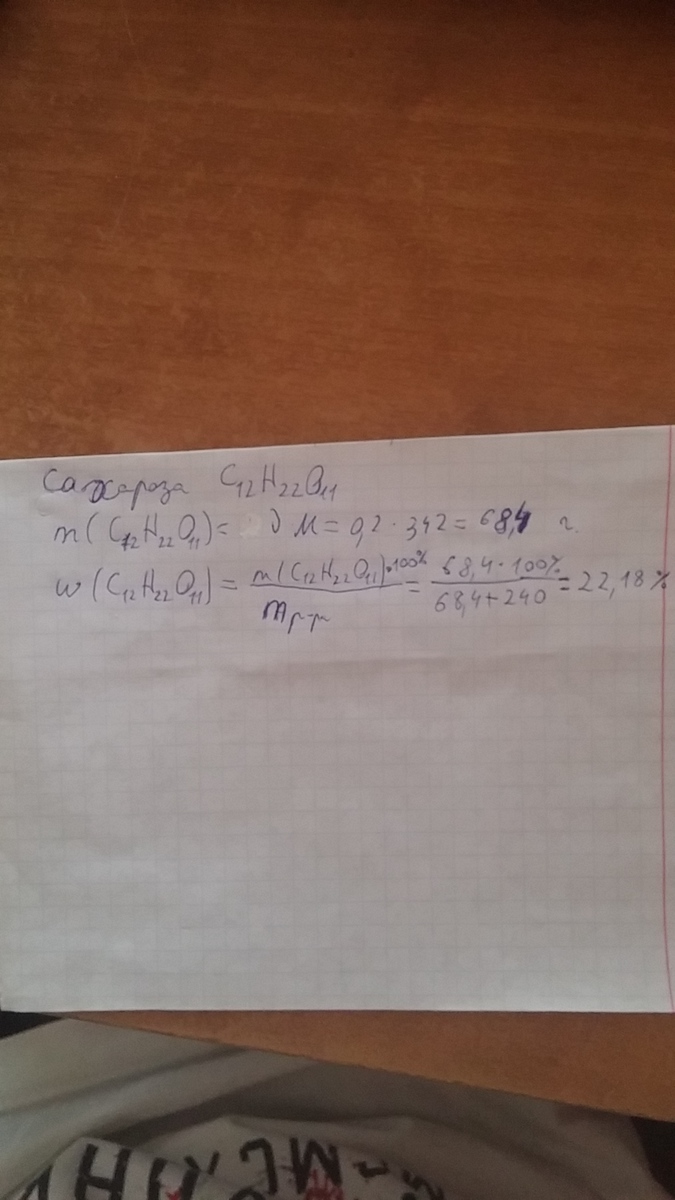 Сахароза C₁₂H₂₂O₁₁
m(C₁₂H₂₂O₁₁)= ν M = 0,2 · 342 = 68,4 г.
w(C₁₂H₂₂O₁₁) = m(C₁₂H₂₂O₁₁)·100% / m р-ра = 68,4·100% / 68,4+240 = 22,18 %